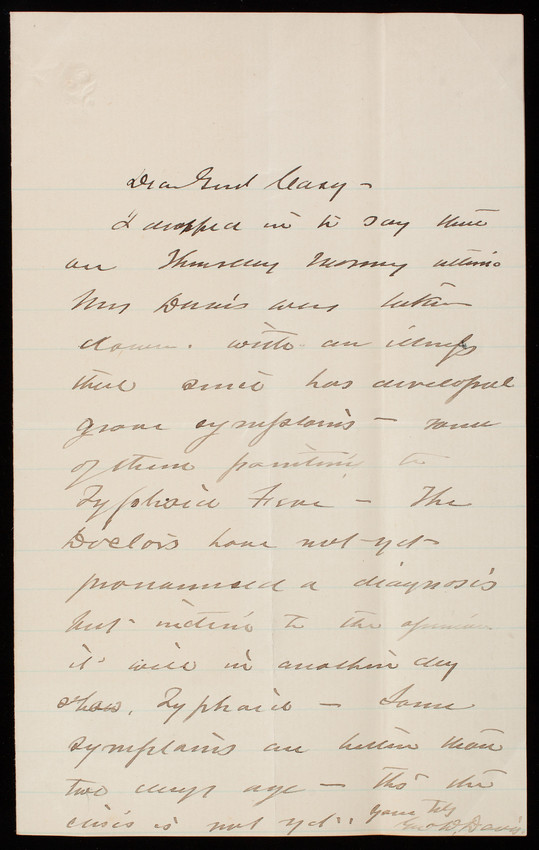 Dear Genl Casey -
I dropped in to say that
on Thursday Morning
Mrs Davis was taken
down. with an illness
that since has developed
grave symptoms - some
of them pointing to
Typhoid Fever - The
Doctors have not yet
pronounced a diagnosis
but incline to the opinion
it will in another day
show, Typhoid - Some
symptoms are better than
two days ago - tho' the
crisis is not yet. yours try
Geo W. Davis